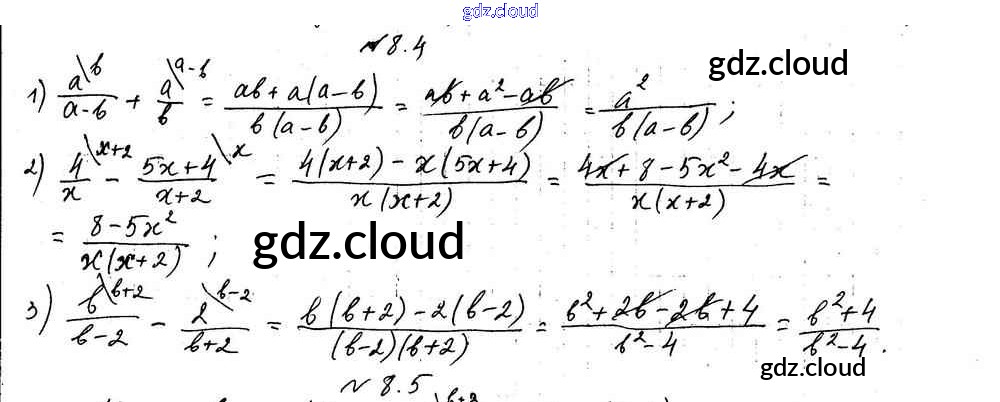 gdz.cloud
№ 8.4
gdz.cloud
1) a\b/(a-b) + a\a-b/b = (ab+a(a-b))/(b(a-b)) = (ab+a²-ab)/(b(a-b)) = a²/(b(a-b));
2) 4\x+2/x - (5x+4)\x/(x+2) = (4(x+2)-x(5x+4))/(x(x+2)) = (4x+8-5x²-4x)/(x(x+2)) =
= (8-5x²)/(x(x+2)); gdz.cloud
3) b\b+2/(b-2) - 2\b-2/(b+2) = (b(b+2)-2(b-2))/((b-2)(b+2)) = (b²+2b-2b+4)/(b²-4) = (b²+4)/(b²-4).
gdz.cloud
№ 8.5